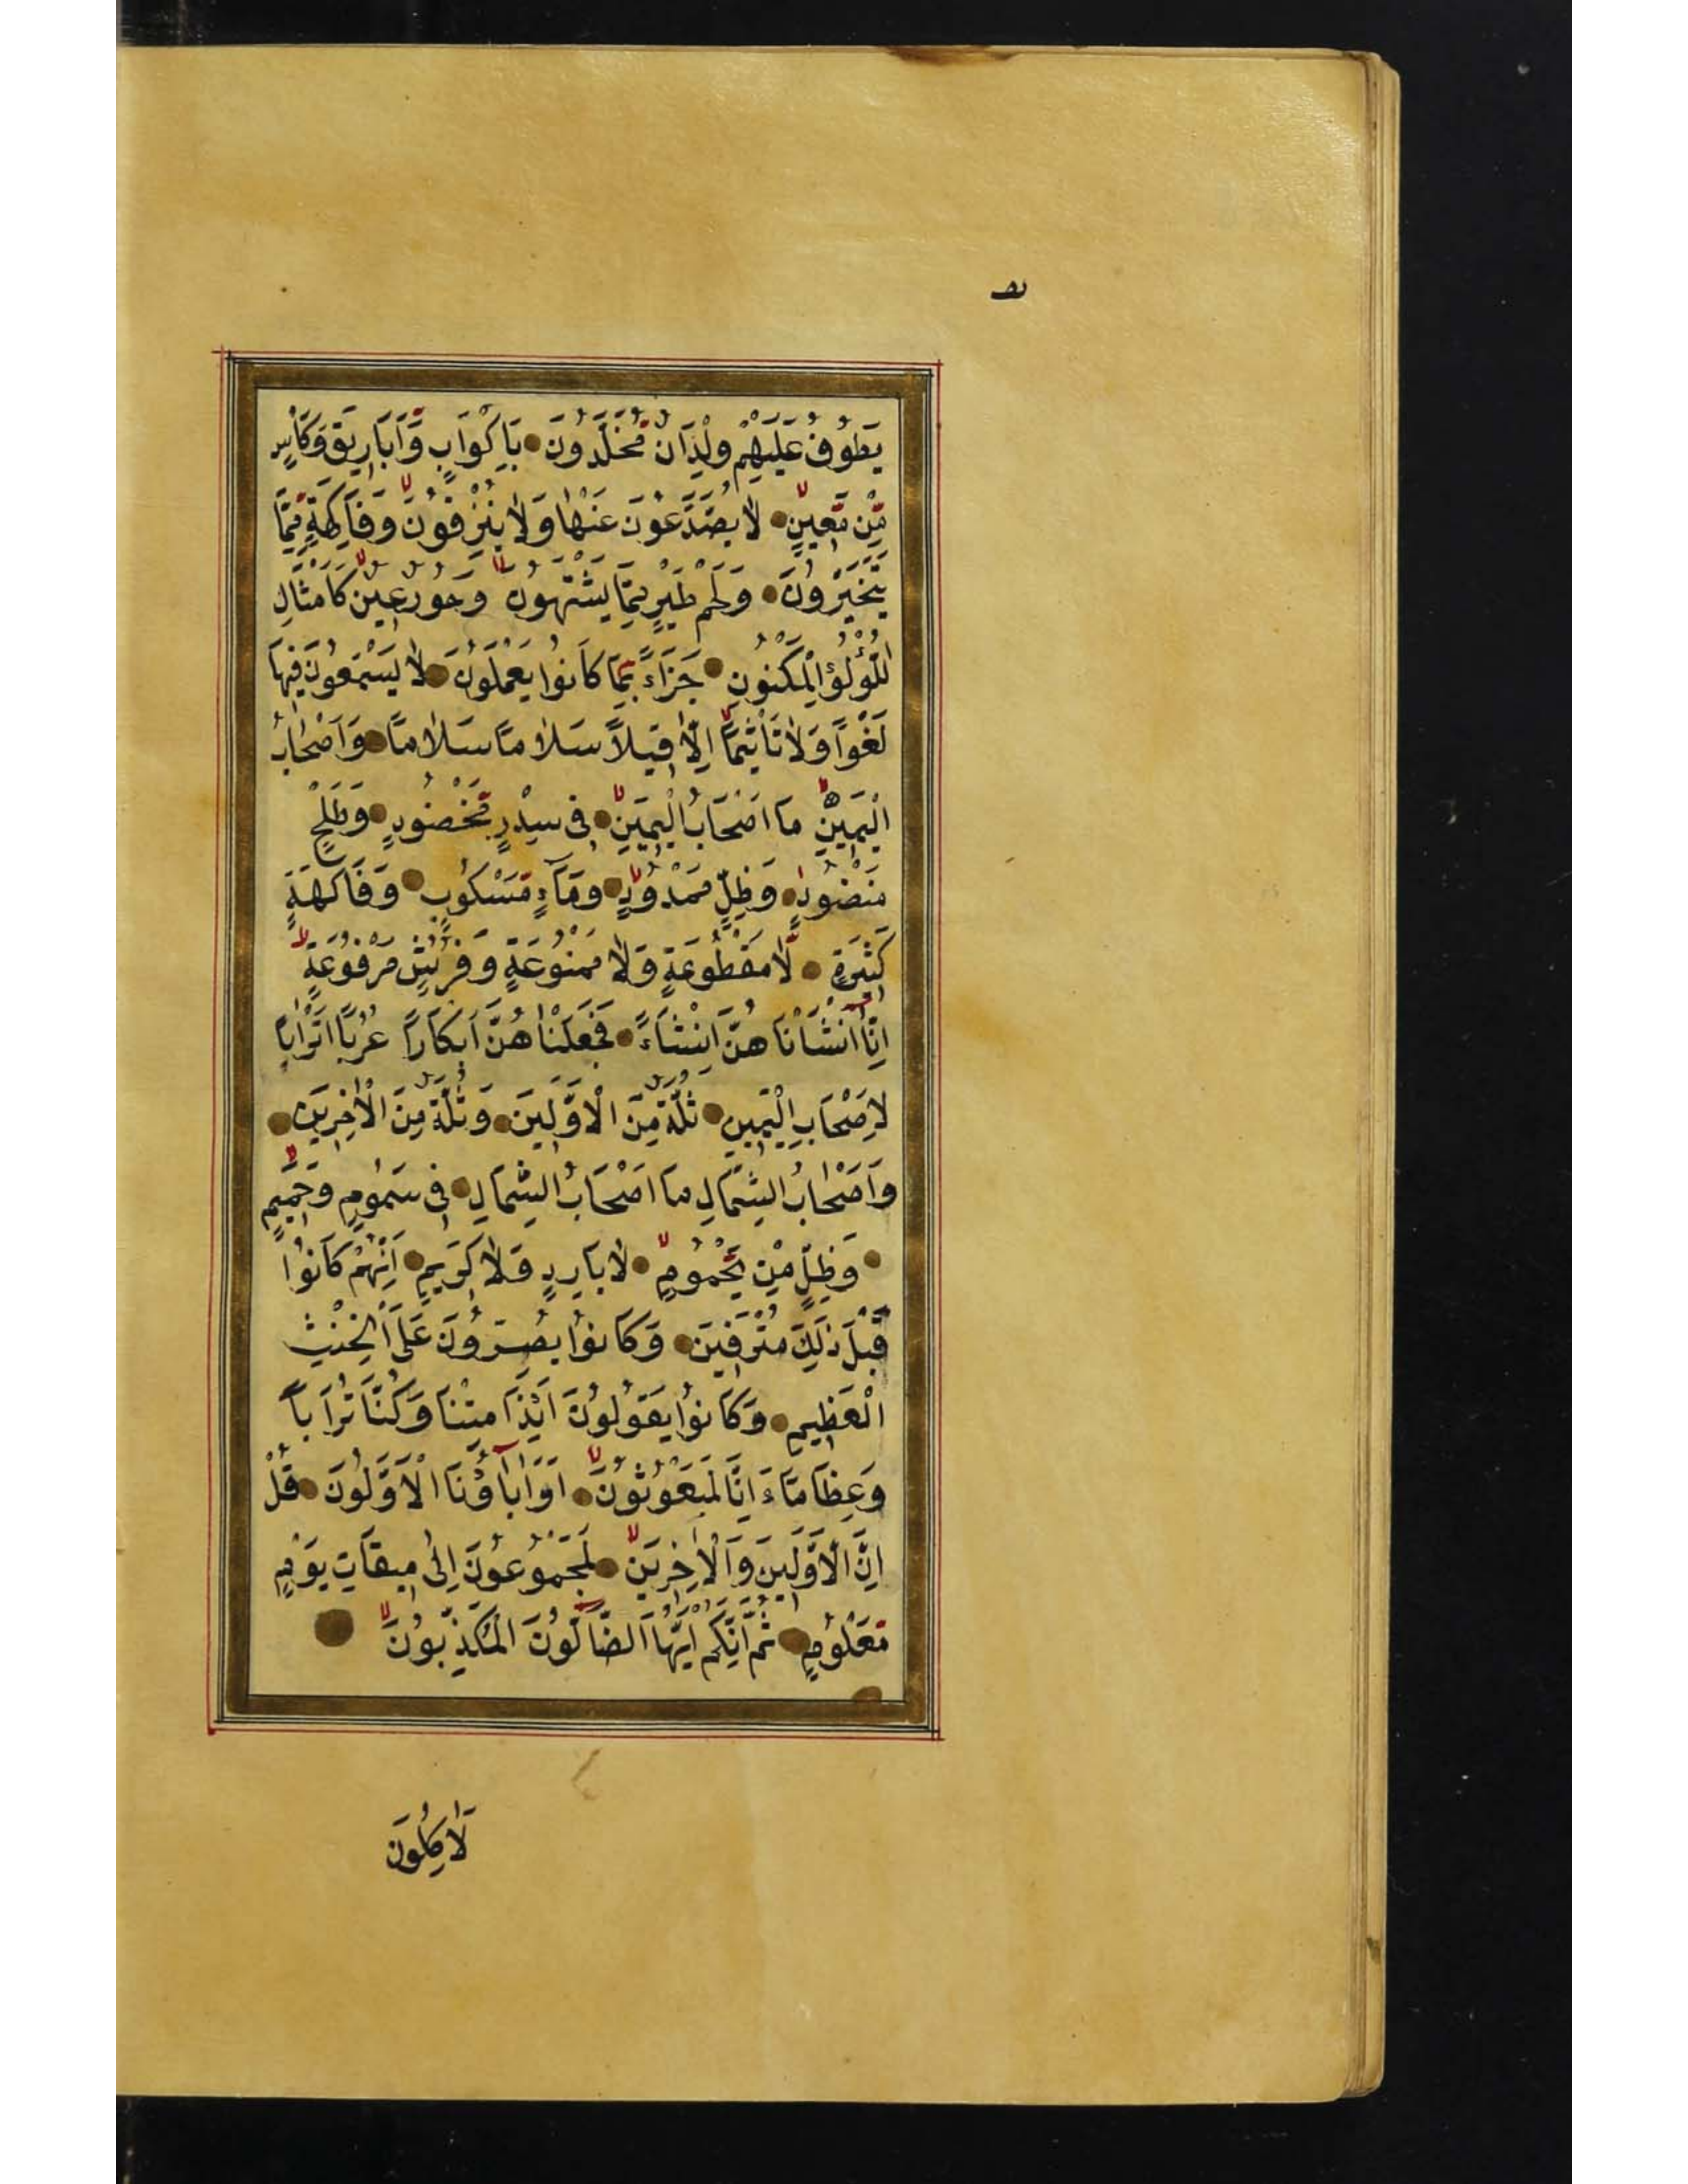 يَطُوفُ عَلَيْهِمْ وِلْدَانٌ مُخَلَّدُونَ بِاَكْوَابٍ وَّاَبَارِيقَ وَكَاْسٍ
مِّنْ مَّعِينٍ لَا يُصَدَّعُونَ عَنْهَا وَلَا يُنْزِفُونَ وَفَاكِهَةٍ مِّمَّا
يَتَخَيَّرُونَ وَلَحْمِ طَيْرٍ مِمَّا يَشْتَهُونَ وَحُورٌ عِينٌ كَاَمْثَالِ
اللُّؤْلُؤِ الْمَكْنُونِ جَزَاءً بِمَا كَانُوا يَعْمَلُونَ لَا يَسْمَعُونَ فِيهَا
لَغْوًا وَلَا تَاْثِيمًا اِلَّا قِيلًا سَلَامًا سَلَامًا وَاَصْحَابُ
الْيَمِينِ مَا اَصْحَابُ الْيَمِينِ فِى سِدْرٍ مَّخْضُودٍ وَطَلْحٍ
مَنْضُودٍ وَظِلٍّ مَمْدُودٍ وَمَآءٍ مَسْكُوبٍ وَفَاكِهَةٍ
كَثِيرَةٍ لَّا مَقْطُوعَةٍ وَلَا مَمْنُوعَةٍ وَفُرُشٍ مَرْفُوعَةٍ
اِنَّا اَنْشَاْنَاهُنَّ اِنْشَاءً فَجَعَلْنَاهُنَّ اَبْكَارًا عُرُبًا اَتْرَابًا
لِاَصْحَابِ الْيَمِينِ ثُلَّةٌ مِنَ الْاَوَّلِينَ وَثُلَّةٌ مِنَ الْاٰخِرِينَ
وَاَصْحَابُ الشِّمَالِ مَا اَصْحَابُ الشِّمَالِ فِى سَمُومٍ وَحَمِيمٍ
وَظِلٍّ مِنْ يَّحْمُومٍ لَا بَارِدٍ وَلَا كَرِيمٍ اِنَّهُمْ كَانُوا
قَبْلَ ذٰلِكَ مُتْرَفِينَ وَكَانُوا يُصِرُّونَ عَلَى الْحِنْثِ
الْعَظِيمِ وَكَانُوا يَقُولُونَ اَئِذَا مِتْنَا وَكُنَّا تُرَابًا
وَعِظَامًا ءَاِنَّا لَمَبْعُوثُونَ اَوَاٰبَاؤُنَا الْاَوَّلُونَ قُلْ
اِنَّ الْاَوَّلِينَ وَالْاٰخِرِينَ لَمَجْمُوعُونَ اِلٰى مِيقَاتِ يَوْمٍ
مَعْلُومٍ ثُمَّ اِنَّكُمْ اَيُّهَا الضَّالُّونَ الْمُكَذِّبُونَ
لَاٰكِلُونَ